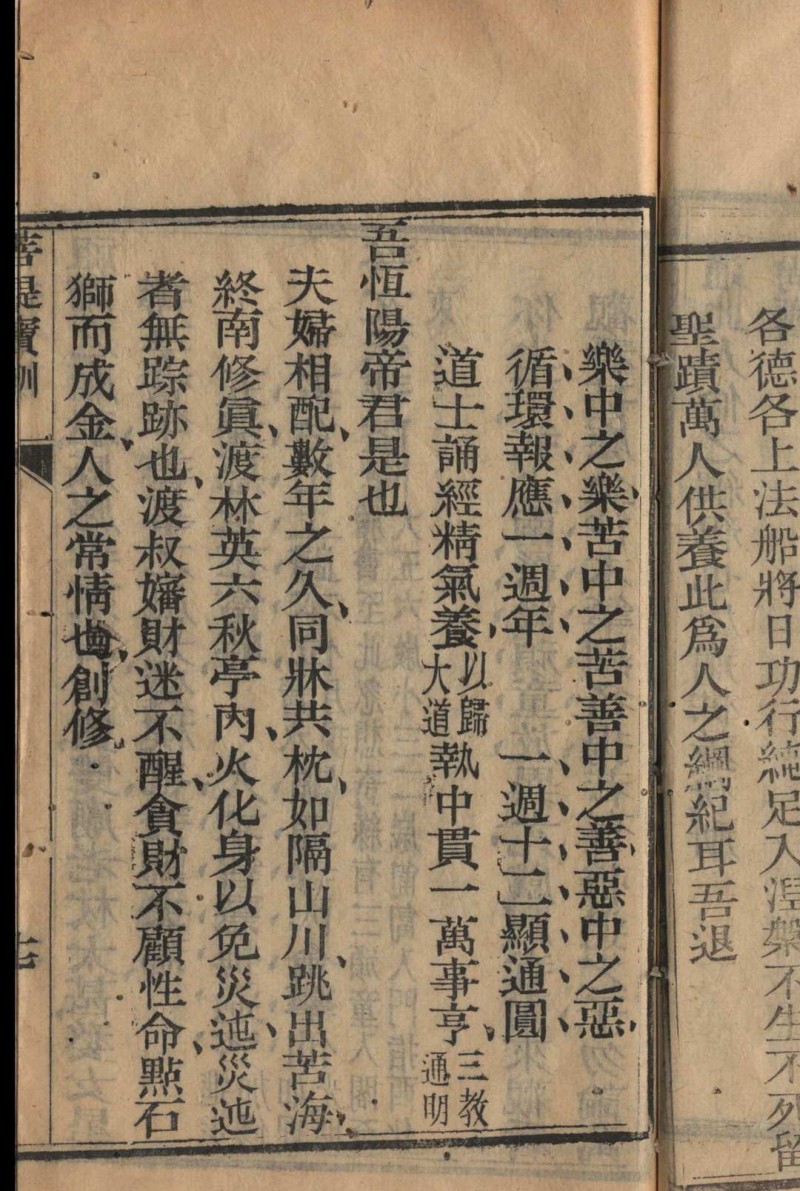 各德各上法船將日功行純足入涅槃不生不死留
聖蹟萬人供養此為人之綱紀耳吾退
樂中之樂苦中之苦善中之善惡中之惡
循環報應一週年　一週十二顯通圓
道士誦經精氣養以歸大道執中貫一萬事亨三教通明
吾恆陽帝君是也
夫婦相配數年之久同牀共枕如隔山川跳出苦海
終南修眞渡林英六秋亭內火化身以免災迍災迍
者無踪跡也渡叔嬸財迷不醒貪財不顧性命點石
獅而成金人之常情也創修
菩提寶訓
七